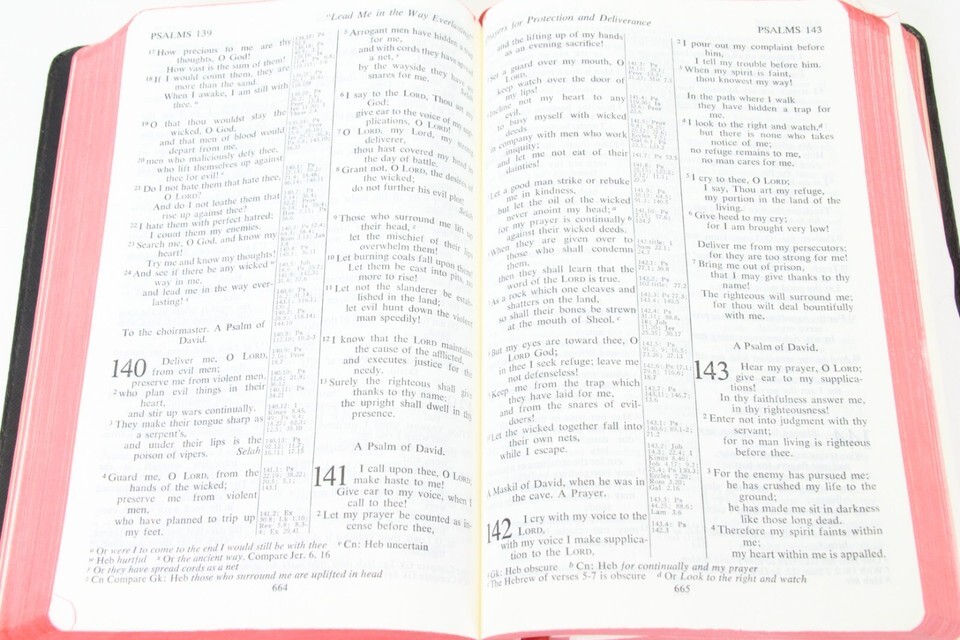 PSALMS 139
"Lead Me in the Way
17 How precious to me are thy
thoughts, O God!
How vast is the sum of them!
18 If I would count them, they are
more than the sand.
When I awake, I am still with
thee.
19 O that thou wouldst slay the
wicked, O God,
and that men of blood would
depart from me,
20 men who maliciously defy thee,
who lift themselves up against
thee for evil!
21 Do I not hate them that hate thee,
O LORD?
And do I not loathe them that
rise up against thee?
22 I hate them with perfect hatred;
I count them my enemies.
23 Search me, O God, and know my
heart!
Try me and know my thoughts!
24 And see if there be any wicked
way in me,
and lead me in the way ever-
lasting!
To the choirmaster. A Psalm of
David.
140 Deliver me, O LORD,
from evil men;
preserve me from violent men,
2 who plan evil things in their
heart,
and stir up wars continually.
3 They make their tongue sharp as
a serpent's,
and under their lips is the
poison of vipers. Selah
4 Guard me, O LORD, from the
hands of the wicked;
preserve me from violent
men,
who have planned to trip up
my feet.
5 Arrogant men have hidden a
for me,
and with cords they have
a net,
by the wayside they have
snares for me.
6 I say to the LORD, Thou art
God;
give ear to the voice of my
plications, O LORD!
7 O LORD, my Lord, my
deliverer,
thou hast covered my head in
the day of battle.
8 Grant not, O LORD, the desires of
the wicked;
do not further his evil plot!
Selah
9 Those who surround me lift up
their head,
let the mischief of their lips
overwhelm them!
10 Let burning coals fall upon them!
Let them be cast into pits, no
more to rise!
11 Let not the slanderer be estab-
lished in the land;
let evil hunt down the violent
man speedily!
12 I know that the LORD maintains
the cause of the afflicted,
and executes justice for the
needy.
13 Surely the righteous shall give
thanks to thy name;
the upright shall dwell in thy
presence.
A Psalm of David.
141 I call upon thee, O LORD;
make haste to me!
Give ear to my voice, when I
call to thee!
2 Let my prayer be counted as in-
cense before thee,
Or were I to come to the end I would still be with thee
Cn: Heb uncertain
Heb hurtful Or the ancient way. Compare Jer. 6. 16
Or they have spread cords as a net
Cn Compare Gk: Heb those who surround me are uplifted in head
664
for Protection and Deliverance
PSALMS 143
and the lifting up of my hands
as an evening sacrifice!
a guard over my mouth, O
LORD,
keep watch over the door of
my lips!
not my heart to any
evil,
to busy myself with wicked
deeds
in company with men who work
iniquity;
and let me not eat of their
dainties!
Let a good man strike or rebuke
me in kindness,
but let the oil of the wicked
never anoint my head;
for my prayer is continually
against their wicked deeds.
When they are given over to
those who shall condemn
them,
then they shall learn that the
word of the LORD is true.
As a rock which one cleaves and
shatters on the land,
so shall their bones be strewn
at the mouth of Sheol.
But my eyes are toward thee, O
LORD God;
in thee I seek refuge; leave me
not defenseless!
Keep me from the trap which
they have laid for me,
and from the snares of evil-
doers!
Let the wicked together fall into
their own nets,
while I escape.
A Maskil of David, when he was in
the cave. A Prayer.
142 I cry with my voice to the
LORD,
with my voice I make supplica-
tion to the LORD,
2 I pour out my complaint before
him,
I tell my trouble before him.
3 When my spirit is faint,
thou knowest my way!
In the path where I walk
they have hidden a trap for
me.
4 I look to the right and watch,
but there is none who takes
notice of me;
no refuge remains to me,
no man cares for me.
5 I cry to thee, O LORD;
I say, Thou art my refuge,
my portion in the land of the
living.
6 Give heed to my cry;
for I am brought very low!
Deliver me from my persecutors;
for they are too strong for me!
7 Bring me out of prison,
that I may give thanks to thy
name!
The righteous will surround me;
for thou wilt deal bountifully
with me.
A Psalm of David.
143 Hear my prayer, O LORD;
give ear to my supplica-
tions!
In thy faithfulness answer me,
in thy righteousness!
2 Enter not into judgment with thy
servant;
for no man living is righteous
before thee.
3 For the enemy has pursued me;
he has crushed my life to the
ground;
he has made me sit in darkness
like those long dead.
4 Therefore my spirit faints within
me;
my heart within me is appalled.
Gk: Heb obscure b Cn: Heb for continually and my prayer
The Hebrew of verses 5-7 is obscure d Or Look to the right and watch
665